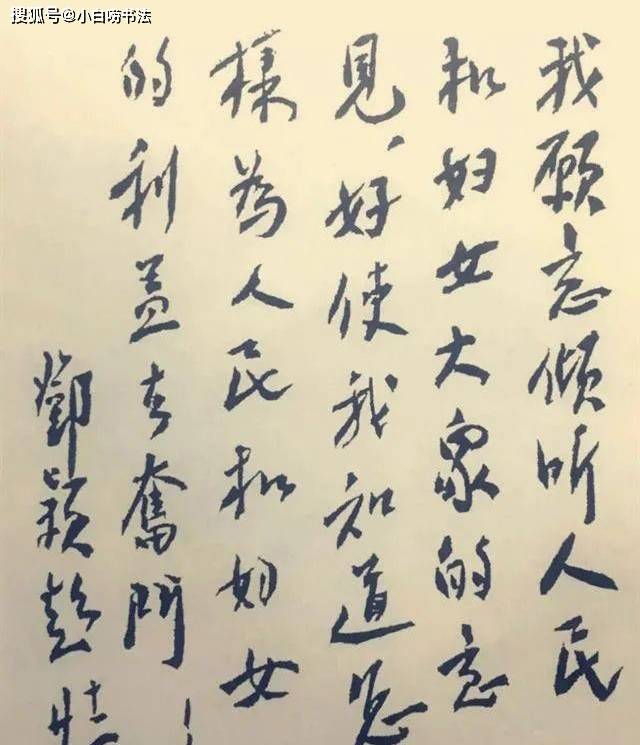 搜狐号@小白唠书法
我願意倾听人民
和妇女大众的意
見、好使我知道怎
樣为人民和妇女
的利益去奮鬥！
鄧颖超